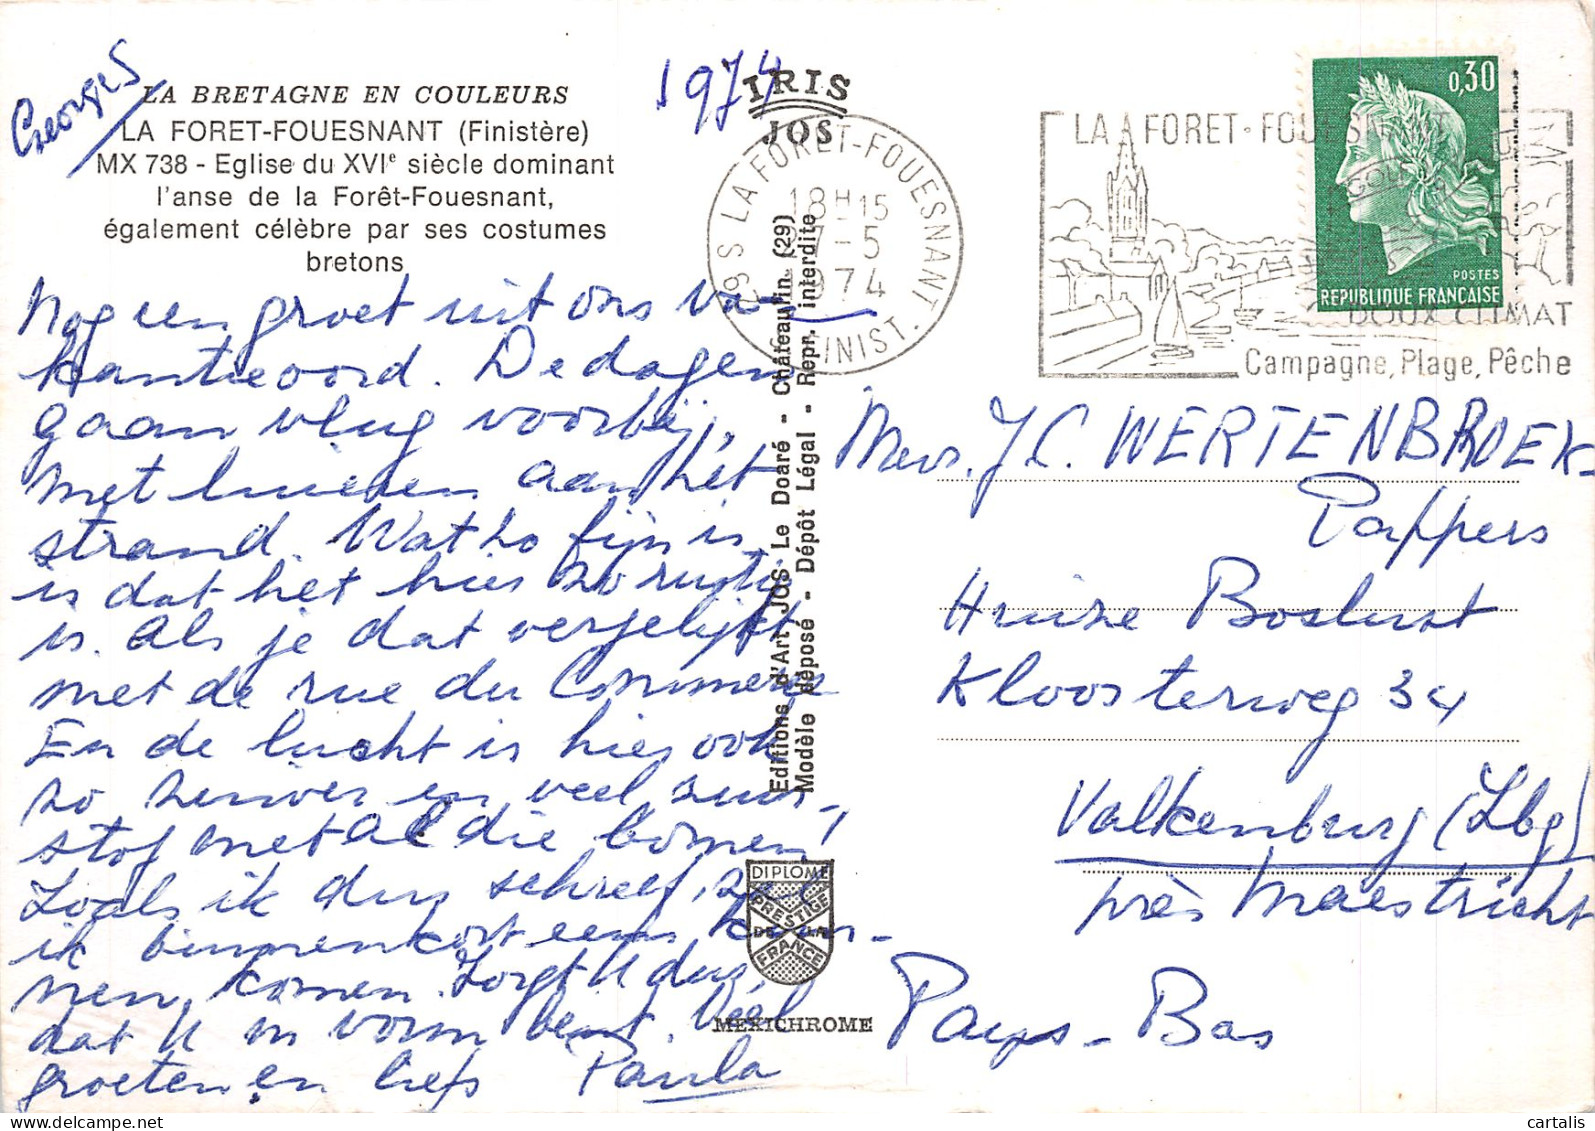 Georges
1974
LA BRETAGNE EN COULEURS
LA FORET-FOUESNANT (Finistère)
MX 738 - Eglise du XVIe siècle dominant
l'anse de la Forêt-Fouesnant,
également célèbre par ses costumes
bretons
Nog een groet uit ons va-
kantieoord. De dagen
gaan vlug voorbij,
met luieren aan het
strand. Wat zo fijn is,
is dat het hier zo rustig
is. Als je dat vergelijkt
met de rue du Commerce
En de lucht is hier ook
zo zuiver en veel zuur-
stof met al die bomen!
Zoals ik dus schreef, zal
ik binnenkort eens kun-
nen komen. Zorgt U dus,
dat U in vorm bent. Veel
groeten en liefs Paula
IRIS
JOS
Editions d'Art JOS Le Doaré - Châteaulin (29)
Modèle déposé - Dépôt Légal - Repr. interdite
DIPLOME
PRESTIGE
DE LA
FRANCE
MEXICHROME
29 S LA FORET-FOUESNANT
18H15
27-5
1974
FINIST.
LA FORET-FOUESNANT
DOUX CLIMAT
Campagne, Plage, Pêche
0,30
POSTES
REPUBLIQUE FRANÇAISE
Mevr. J.C. WERTENBROEK-
Pappers
Huize Boslust
Kloosterweg 34
Valkenburg (Lbg)
près Maestricht
Pays-Bas
cartalis.com